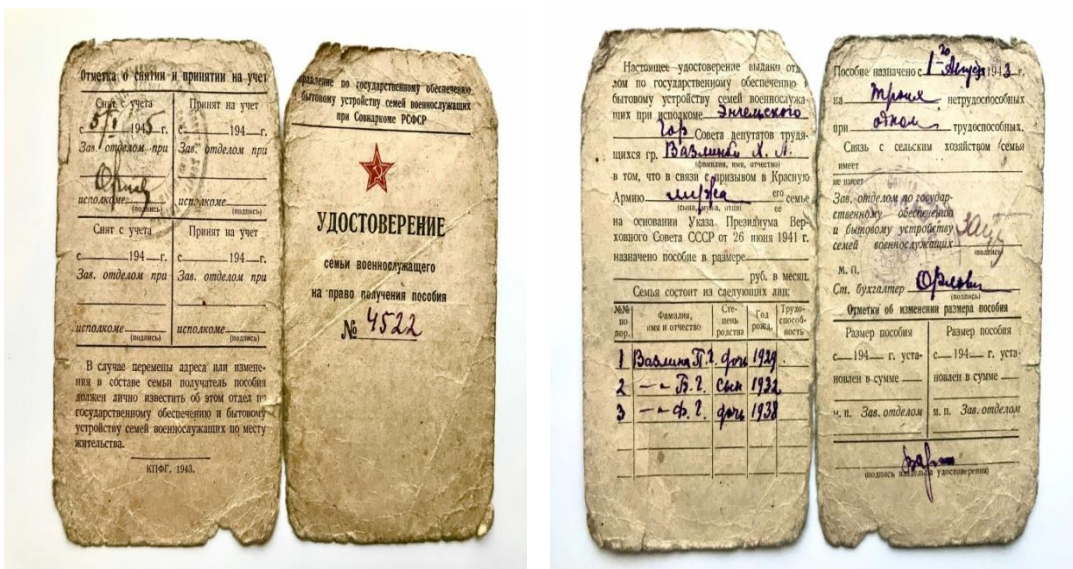 Отметка о снятии и принятии на учет
Снят с учета
с 5/V 1945 г.
Зав. отделом при
исполкоме
(подпись)
Принят на учет
с 194 г.
Зав. отделом при
исполкоме
(подпись)
Снят с учета
с 194 г.
Зав. отделом при
исполкоме
(подпись)
Принят на учет
с 194 г.
Зав. отделом при
исполкоме
(подпись)
В случае перемены адреса или измене-
ния в составе семьи получатель пособия
должен лично известить об этом отдел по
государственному обеспечению и бытовому
устройству семей военнослужащих по месту
жительства.
КПФГ. 1943.
равление по государственному обеспечению
бытовому устройству семей военнослужащих
при Совнаркоме РСФСР
УДОСТОВЕРЕНИЕ
семьи военнослужащего
на право получения пособия
№ 4522
Настоящее удостоверение выдано отде
лом по государственному обеспечению и
бытовому устройству семей военнослужа-
щих при исполкоме Энгельского
Гор Совета депутатов трудя-
щихся гр. Вазлиной Х. Л.
(фамилия, имя, отчество)
в том, что в связи с призывом в Красную
Армию мужа его семье
(сына, мужа, отца) ее
на основании Указа Президиума Вер-
ховного Совета СССР от 26 июня 1941 г.
назначено пособие в размере
руб. в месяц.
Семья состоит из следующих лиц:
№№ по пор. Фамилия, имя и отчество Сте-пень родства Год рожд. Трудо-способ-ность
1 Вазлина П. Г. дочь 1929
2 -„- В. Г. сын 1932
3 -„- Ф. Г. дочь 1938
Пособие назначено с 1го Августа 1943 г.
на троих нетрудоспособных
при одном трудоспособных.
Связь с сельским хозяйством семья
имеет
не имеет
Зав. отделом по государ-
ственному обеспечению
и бытовому устройству
семей военнослужащих
(подпись)
М. П.
Ст. бухгалтер
(подпись)
Отметки об изменении размера пособия
Размер пособия
с 194 г. уста-
новлен в сумме
м. п. Зав. отделом
Размер пособия
с 194 г. уста-
новлен в сумме
м. п. Зав. отделом
(подпись владельца удостоверения)